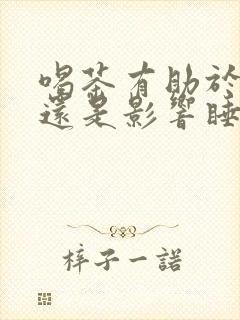 喝茶有助於
還是影響睡
梓子一諾